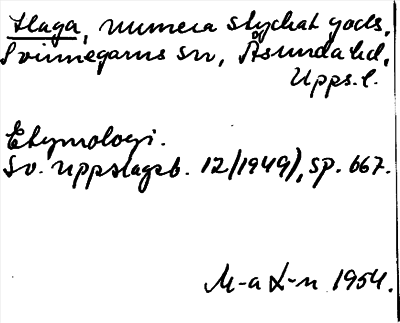 Haga, numera styckat gods,
Svinnegarns sn, Åsunda hd,
Upps. l.
Etymologi.
Sv. uppslagsb. 12 (1949), sp. 667.
M-a L-n 1954.